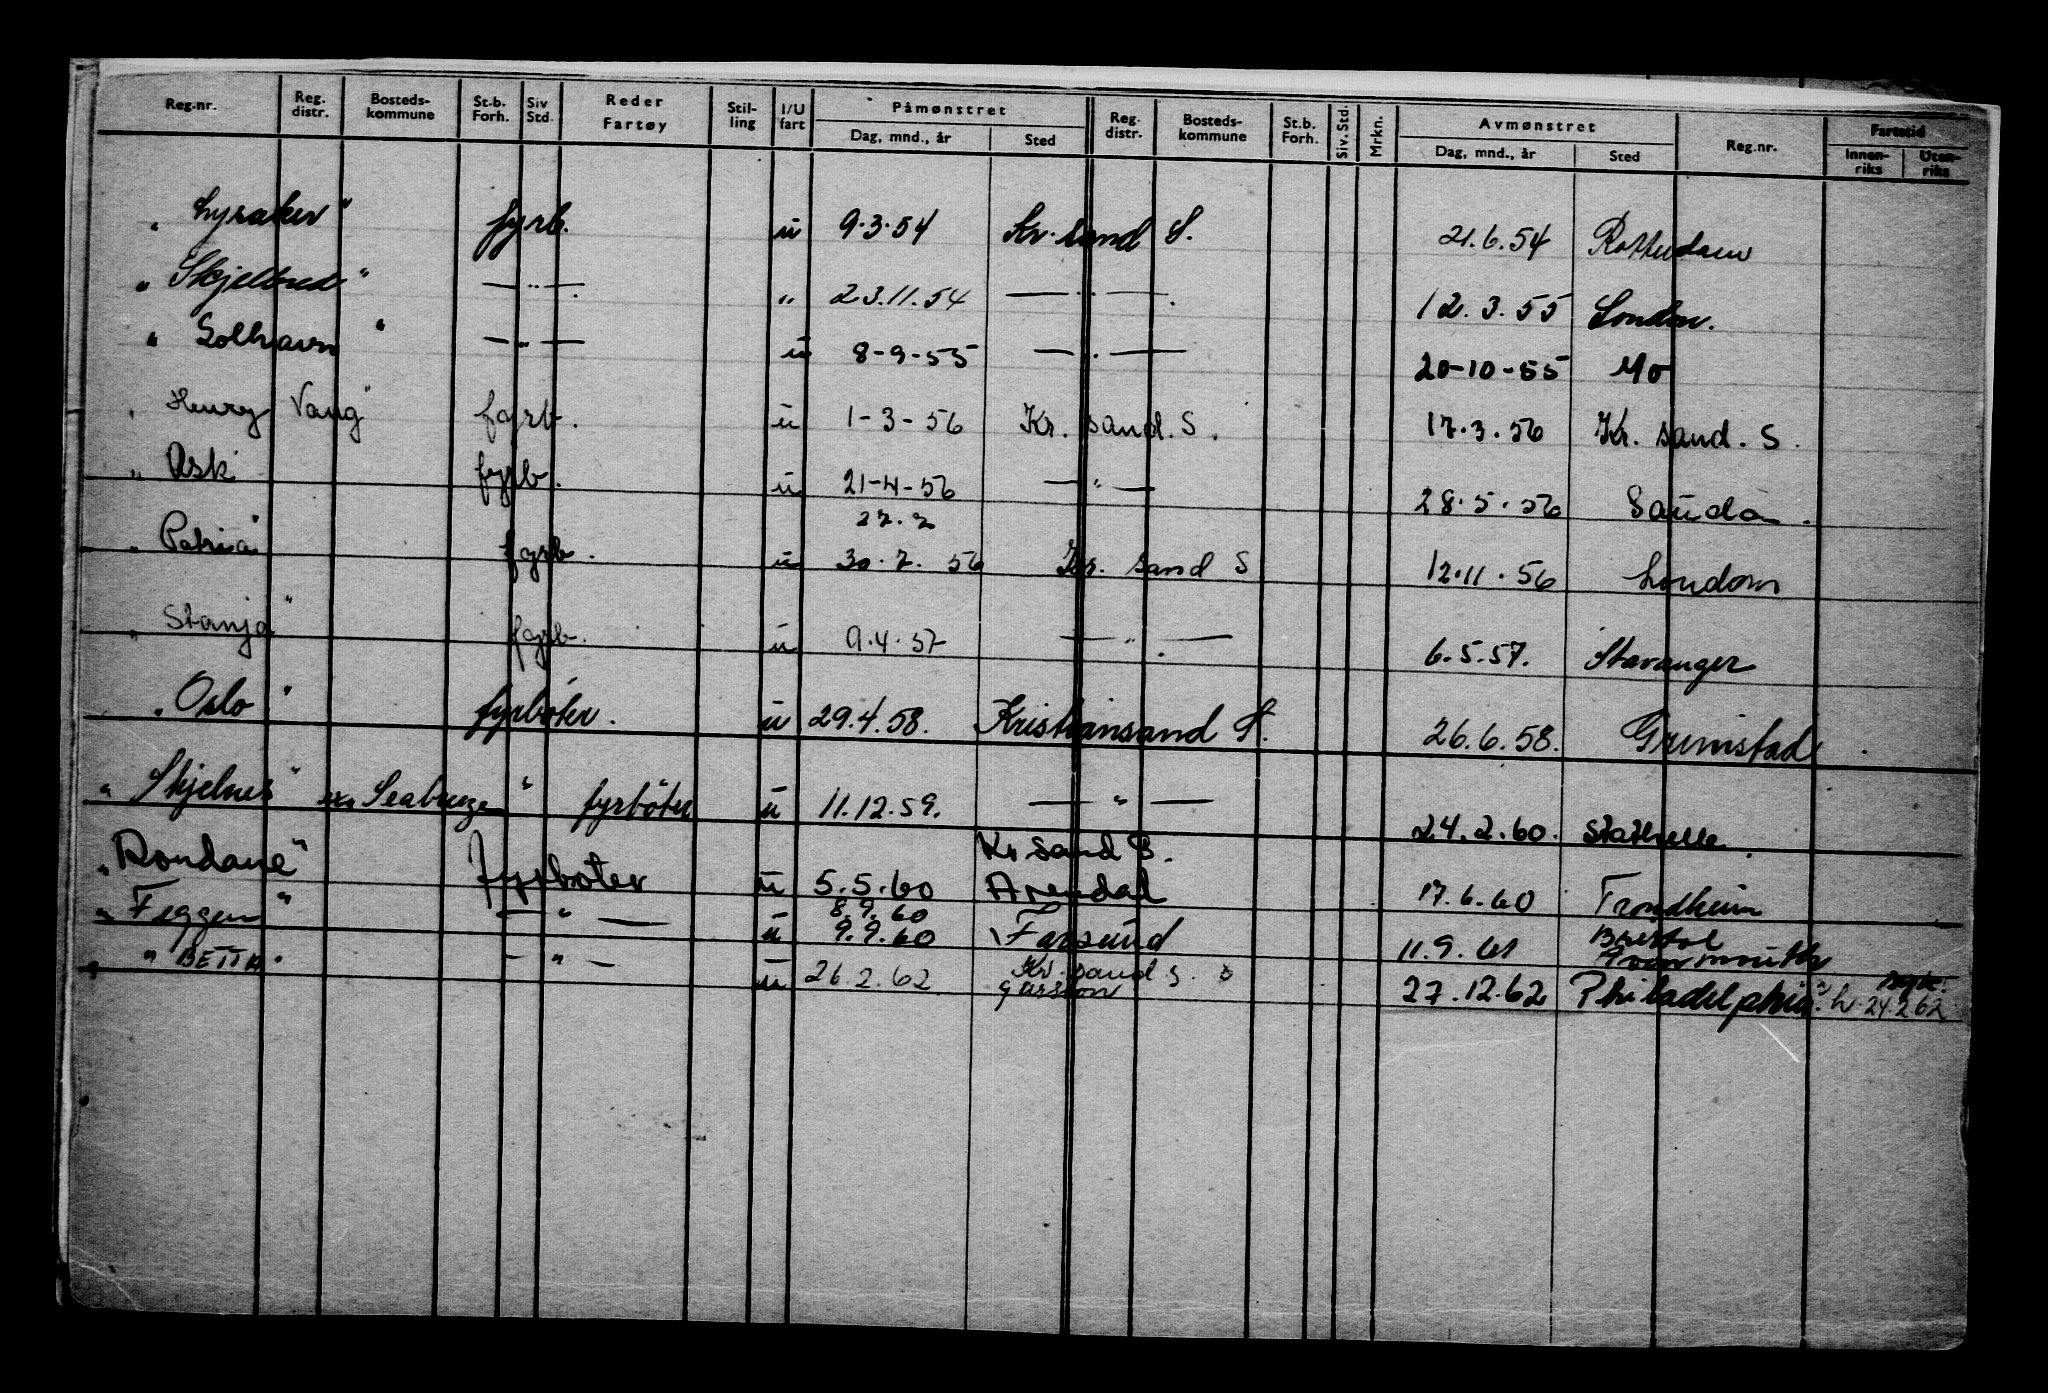 Reg.-nr. Reg. distr. Bosteds-kommune St.b. Forh. Siv Std. Reder Fartøy Stil-ling I/U fart Påmønstret Reg. distr. Bosteds-kommune St.b. Forh. Siv. Std. Mrkn. Avmønstret Reg.nr. Fartstid
Dag, mnd., år Sted Dag, mnd., år Sted Innen-riks Uten-riks
" Lysaker " fyrb. u 9.3.54 Kr.sand S. 21.6.54 Rotterdam
" Skjelbred " — " — " 23.11.54 — " — 12.3.55 London.
" Solhavn " — " — u 8-9-55 — " — 20-10-55 Mo
" Henry Vang " fyrb. u 1-3-56 Kr. sand. S. 17.3.56 Kr. sand. S.
" Ask fyrb. u 21-4-56 — " — 28.5.56 Sauda.
27.7
" Patria " fyrb. u 30.7.56 Kr. sand S 12.11.56 London
" Stanja " fyrb. u 9.4.57 — " — 6.5.57. Stavanger
" Oslo " fyrbøter. u 29.4.58. Kristiansand S. 26.6.58. Grimstad.
" Skjelnes " ex " Seabreeze " fyrbøter u 11.12.59. — " — 24.2.60. Stathelle.
Kr sand S.
" Rondane " fyrbøter u 5.5.60 Arendal 17.6.60 Trondheim
8.9.60 Bristol
" Feggen " — " — u 9.9.60 Farsund 11.9.61 Avonmouth
" BETTA " — " — u 26.2.62 Kr.sand S.
27.12.62 Philadelphia. 24.2.62